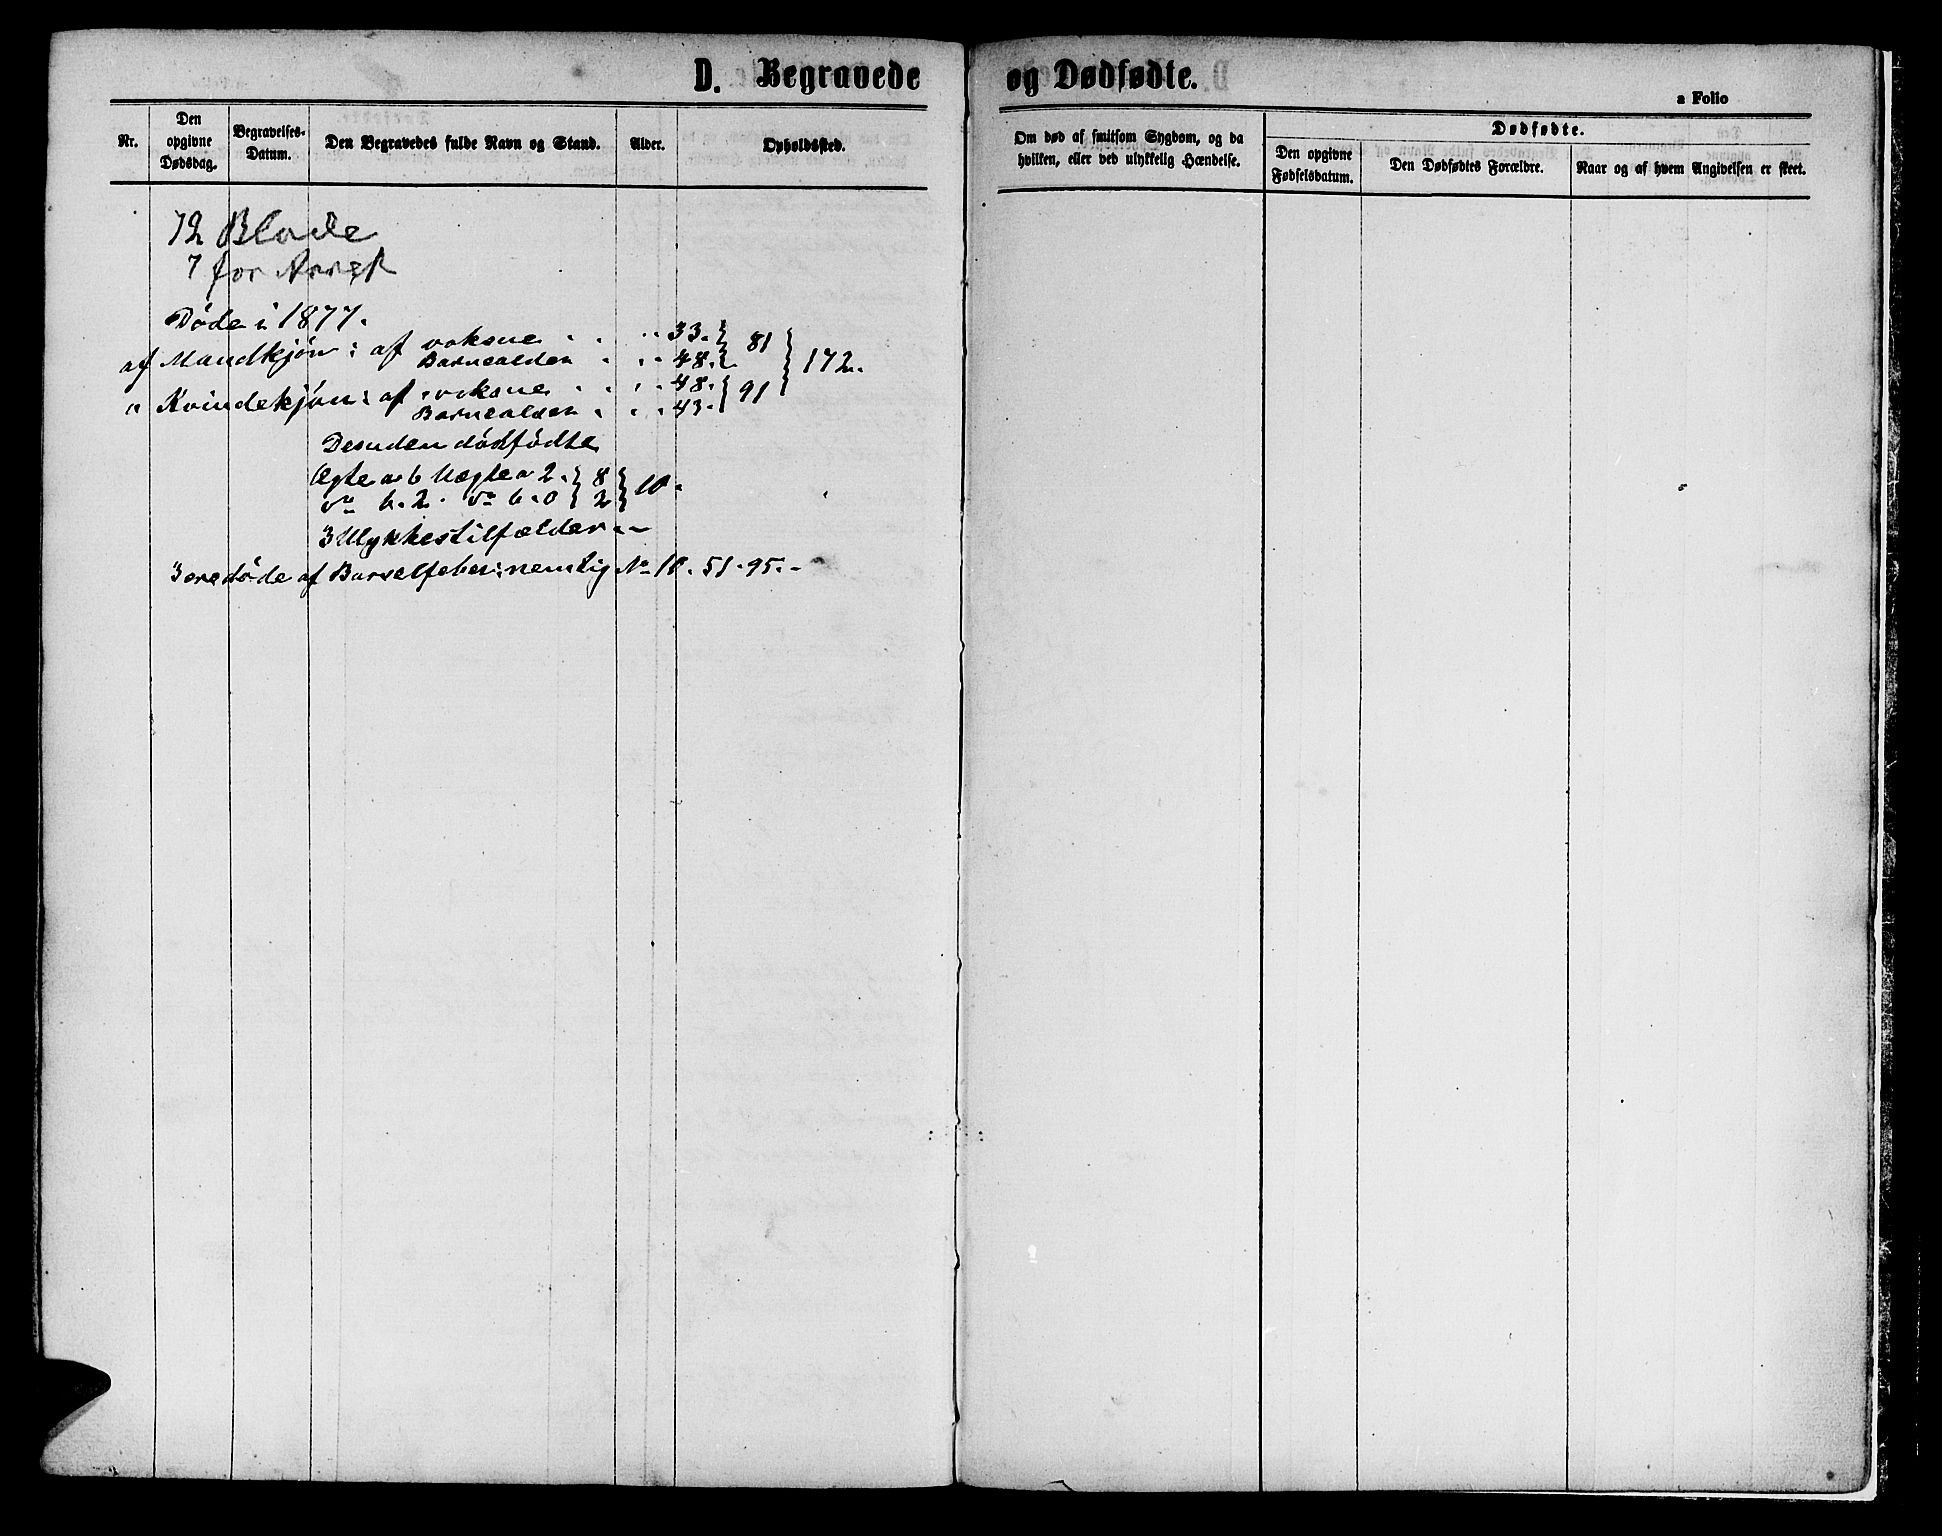 D. Begravede og Dødfødte.
a Folio
Nr.
Den opgivne Dødsdag.
Begravelses-Datum.
Den Begravedes fulde Navn og Stand.
Alder.
Opholdssted.
Om død af smitsom Sygdom, og da hvilken, eller ved ulykkelig Hændelse.
Dødfødte.
Den opgivne Fødselsdatum.
Den Dødfødtes Forældre.
Naar og af hvem Angivelsen er skeet.
72 Blade
7 for
Døde i 1877.
af Mandkjøn: af voksne 33. } 81 } 172.
Barnealder 48. }
" Kvindekjøn: af voksne 48. } 91
Barnealder 43. }
Desuden dødfødte
Ægte 6 Uægte 2. } 8 } 10.
2. 0 } 2 }
3 Ulykkestilfælder
3 ere døde af Barselfeber: nemlig No 10. 51. 95.